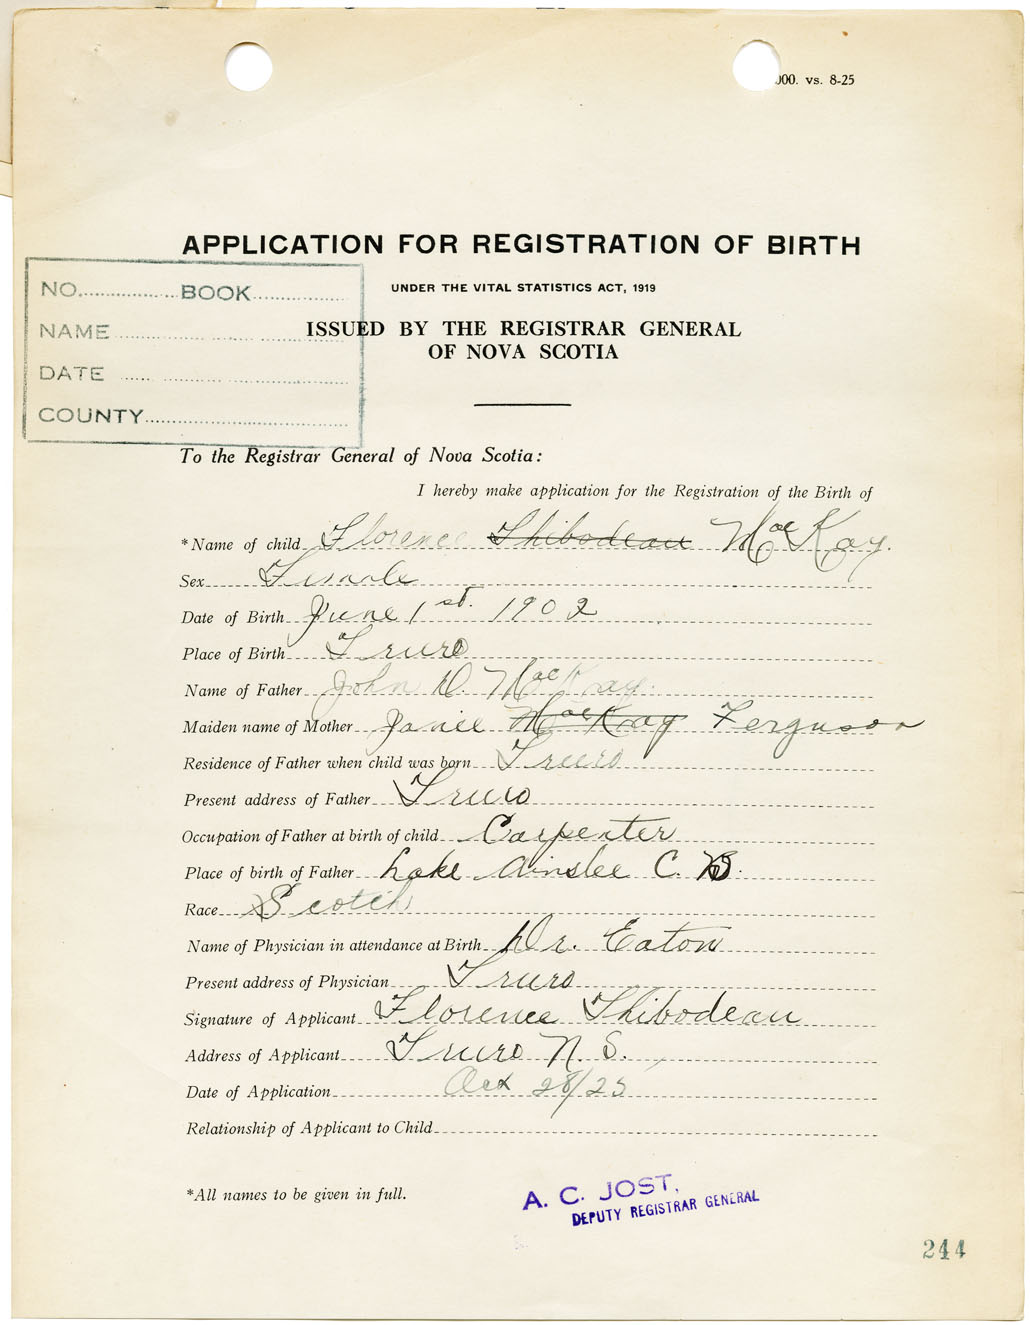 000. vs. 8-25
APPLICATION FOR REGISTRATION OF BIRTH
UNDER THE VITAL STATISTICS ACT, 1919
ISSUED BY THE REGISTRAR GENERAL
OF NOVA SCOTIA
NO. BOOK
NAME
DATE
COUNTY
To the Registrar General of Nova Scotia:
I hereby make application for the Registration of the Birth of
*Name of child Florence Thibodeau MacKay.
Sex Female
Date of Birth June 1st. 1902
Place of Birth Truro
Name of Father John D. MacKay.
Maiden name of Mother Janie MacKay Ferguson
Residence of Father when child was born Truro
Present address of Father Truro
Occupation of Father at birth of child Carpenter
Place of birth of Father Lake Ainslee C. B.
Race Scotch
Name of Physician in attendance at Birth Dr. Eaton
Present address of Physician Truro
Signature of Applicant Florence Thibodeau
Address of Applicant Truro N. S.
Date of Application Oct 28/25
Relationship of Applicant to Child
*All names to be given in full.
A. C. JOST,
DEPUTY REGISTRAR GENERAL
244